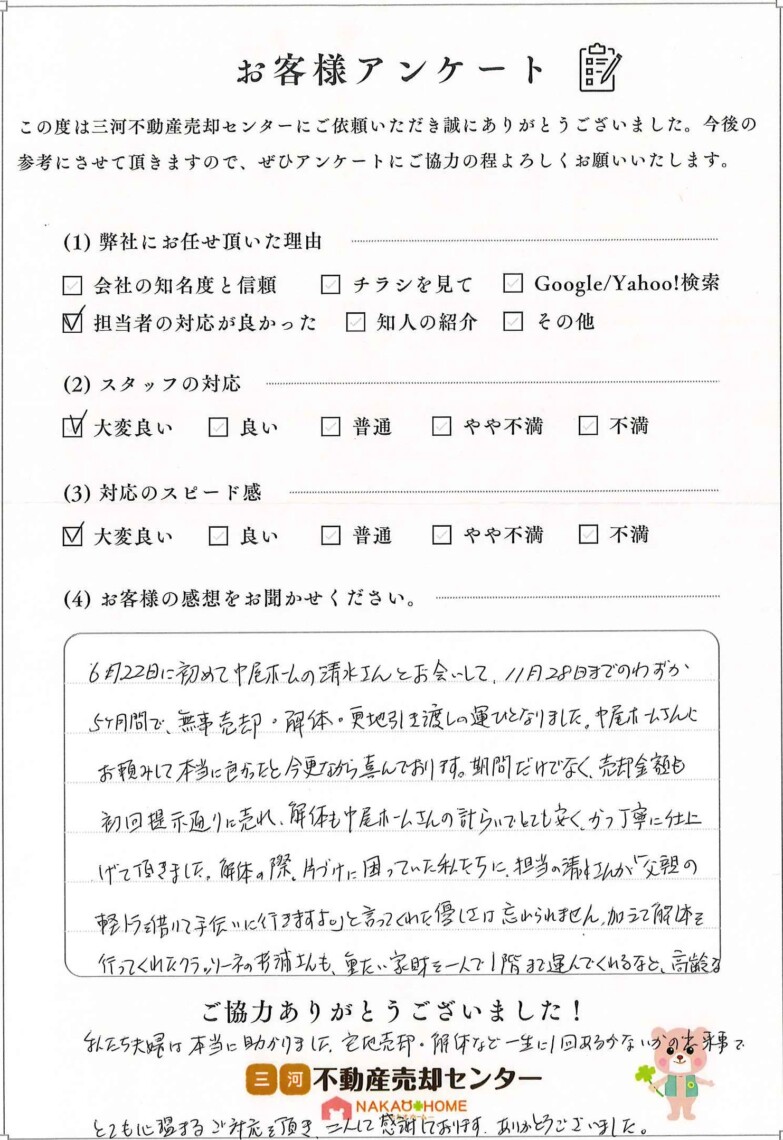 お客様アンケート
この度は三河不動産売却センターにご依頼いただき誠にありがとうございました。今後の
参考にさせて頂きますので、ぜひアンケートにご協力の程よろしくお願いいたします。
(1) 弊社にお任せ頂いた理由
会社の知名度と信頼 チラシを見て Google/Yahoo!検索
担当者の対応が良かった 知人の紹介 その他
(2) スタッフの対応
大変良い 良い 普通 やや不満 不満
(3) 対応のスピード感
大変良い 良い 普通 やや不満 不満
(4) お客様の感想をお聞かせください。
6月22日に初めて中尾ホームの清水さんとお会いして、11月28日までのわずか
5ヶ月間で、無事売却・解体・更地引き渡しの運びとなりました。中尾ホームさんに
お頼みして本当に良かったと今更ながら喜んでおります。期間だけでなく、売却金額も
初回提示通りに売れ、解体も中尾ホームさんの計らいでとても安く、かつ丁寧に仕上
げて頂きました。解体の際、片づけに困っていた私たちに、担当の清水さんが「父親の
軽トラを借りて手伝いに行きますよ。」と言ってくれた優しさは忘れられません。加えて解体を
行ってくれたクラッソーネの杉浦さんも、重たい家財を一人で1階まで運んでくれるなど、高齢な
ご協力ありがとうございました！
私たち夫婦は本当に助かりました。宅地売却・解体など一生に1回あるかないかの出来事で
三河 不動産売却センター
NAKAO HOME
とても心温まるご対応を頂き、二人して感謝しております。ありがとうございました。